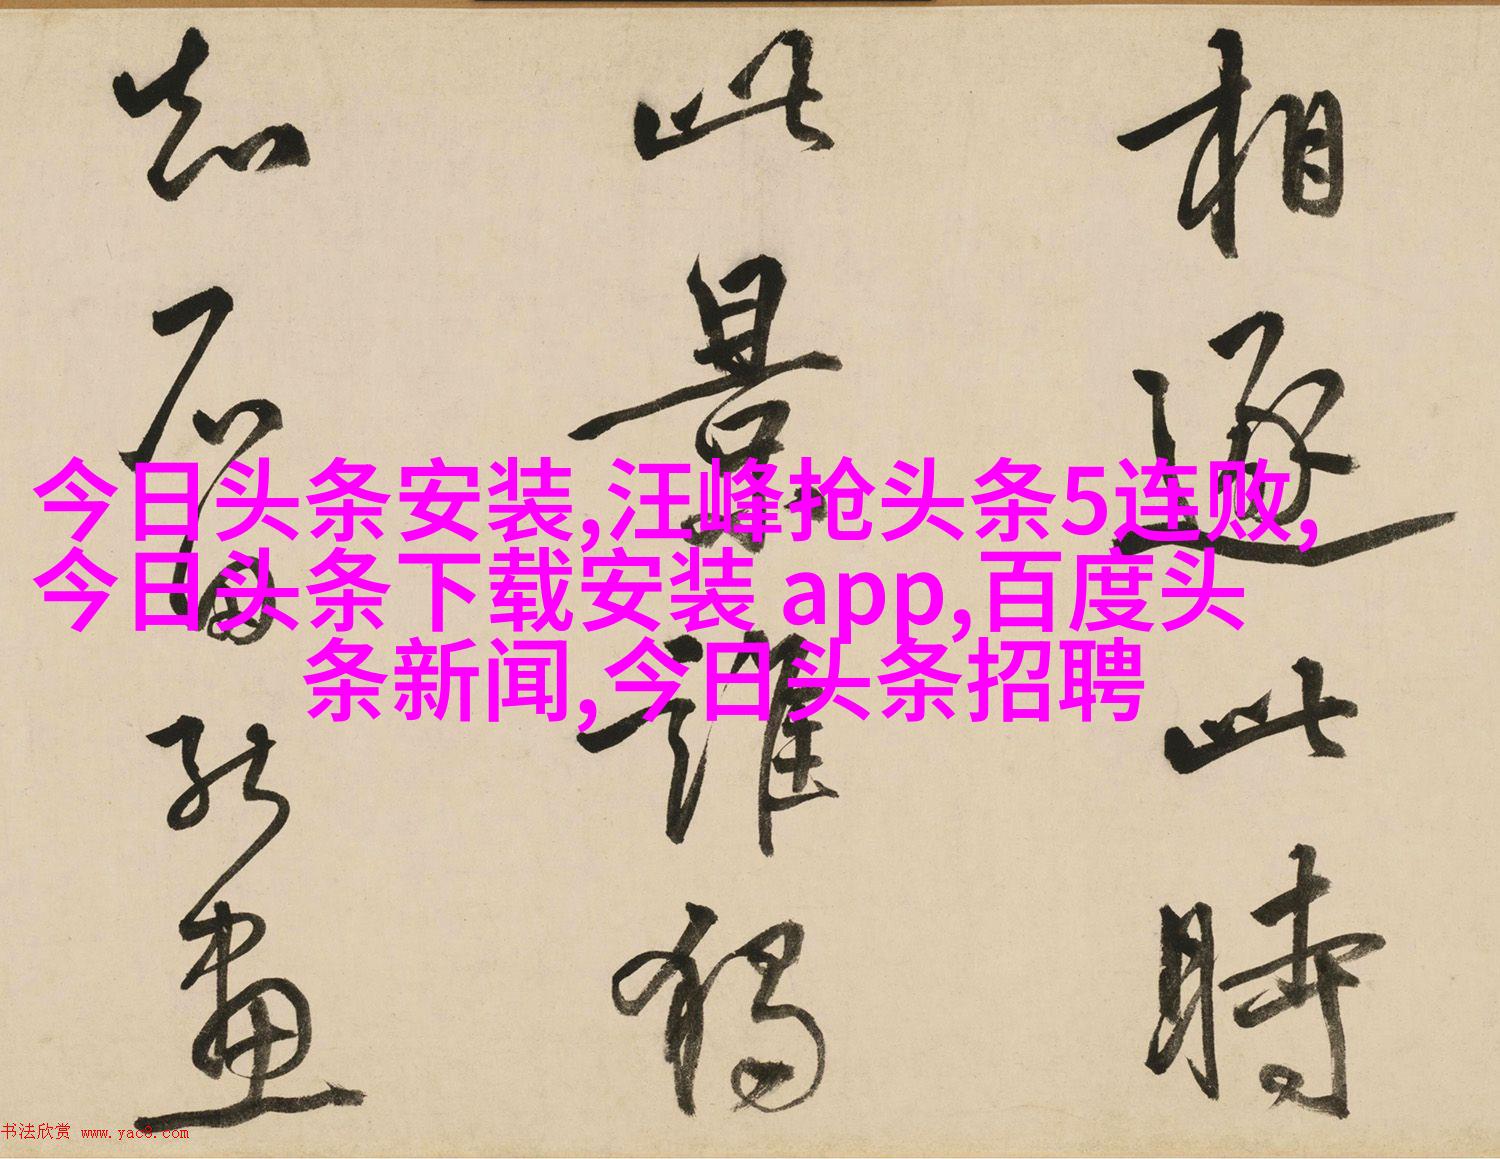 相逐此時
此景誰獨
知石屏能畫
今日头条安装,汪峰抢头条5连败,
今日头条下载安装 app,百度头
条新闻,今日头条招聘
书法欣赏 www.yac8.com